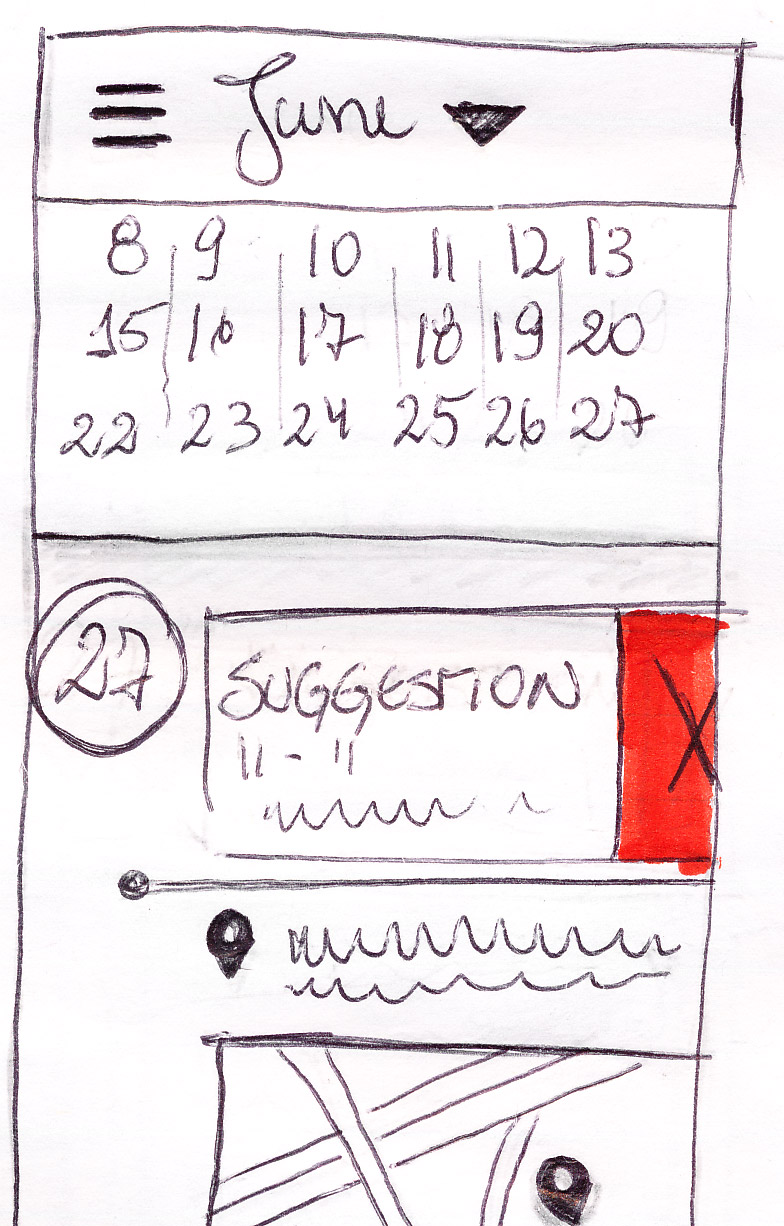 June
8 9 10 11 12 13
15 16 17 18 19 20
22 23 24 25 26 27
27
SUGGESTION
11 - 11
X